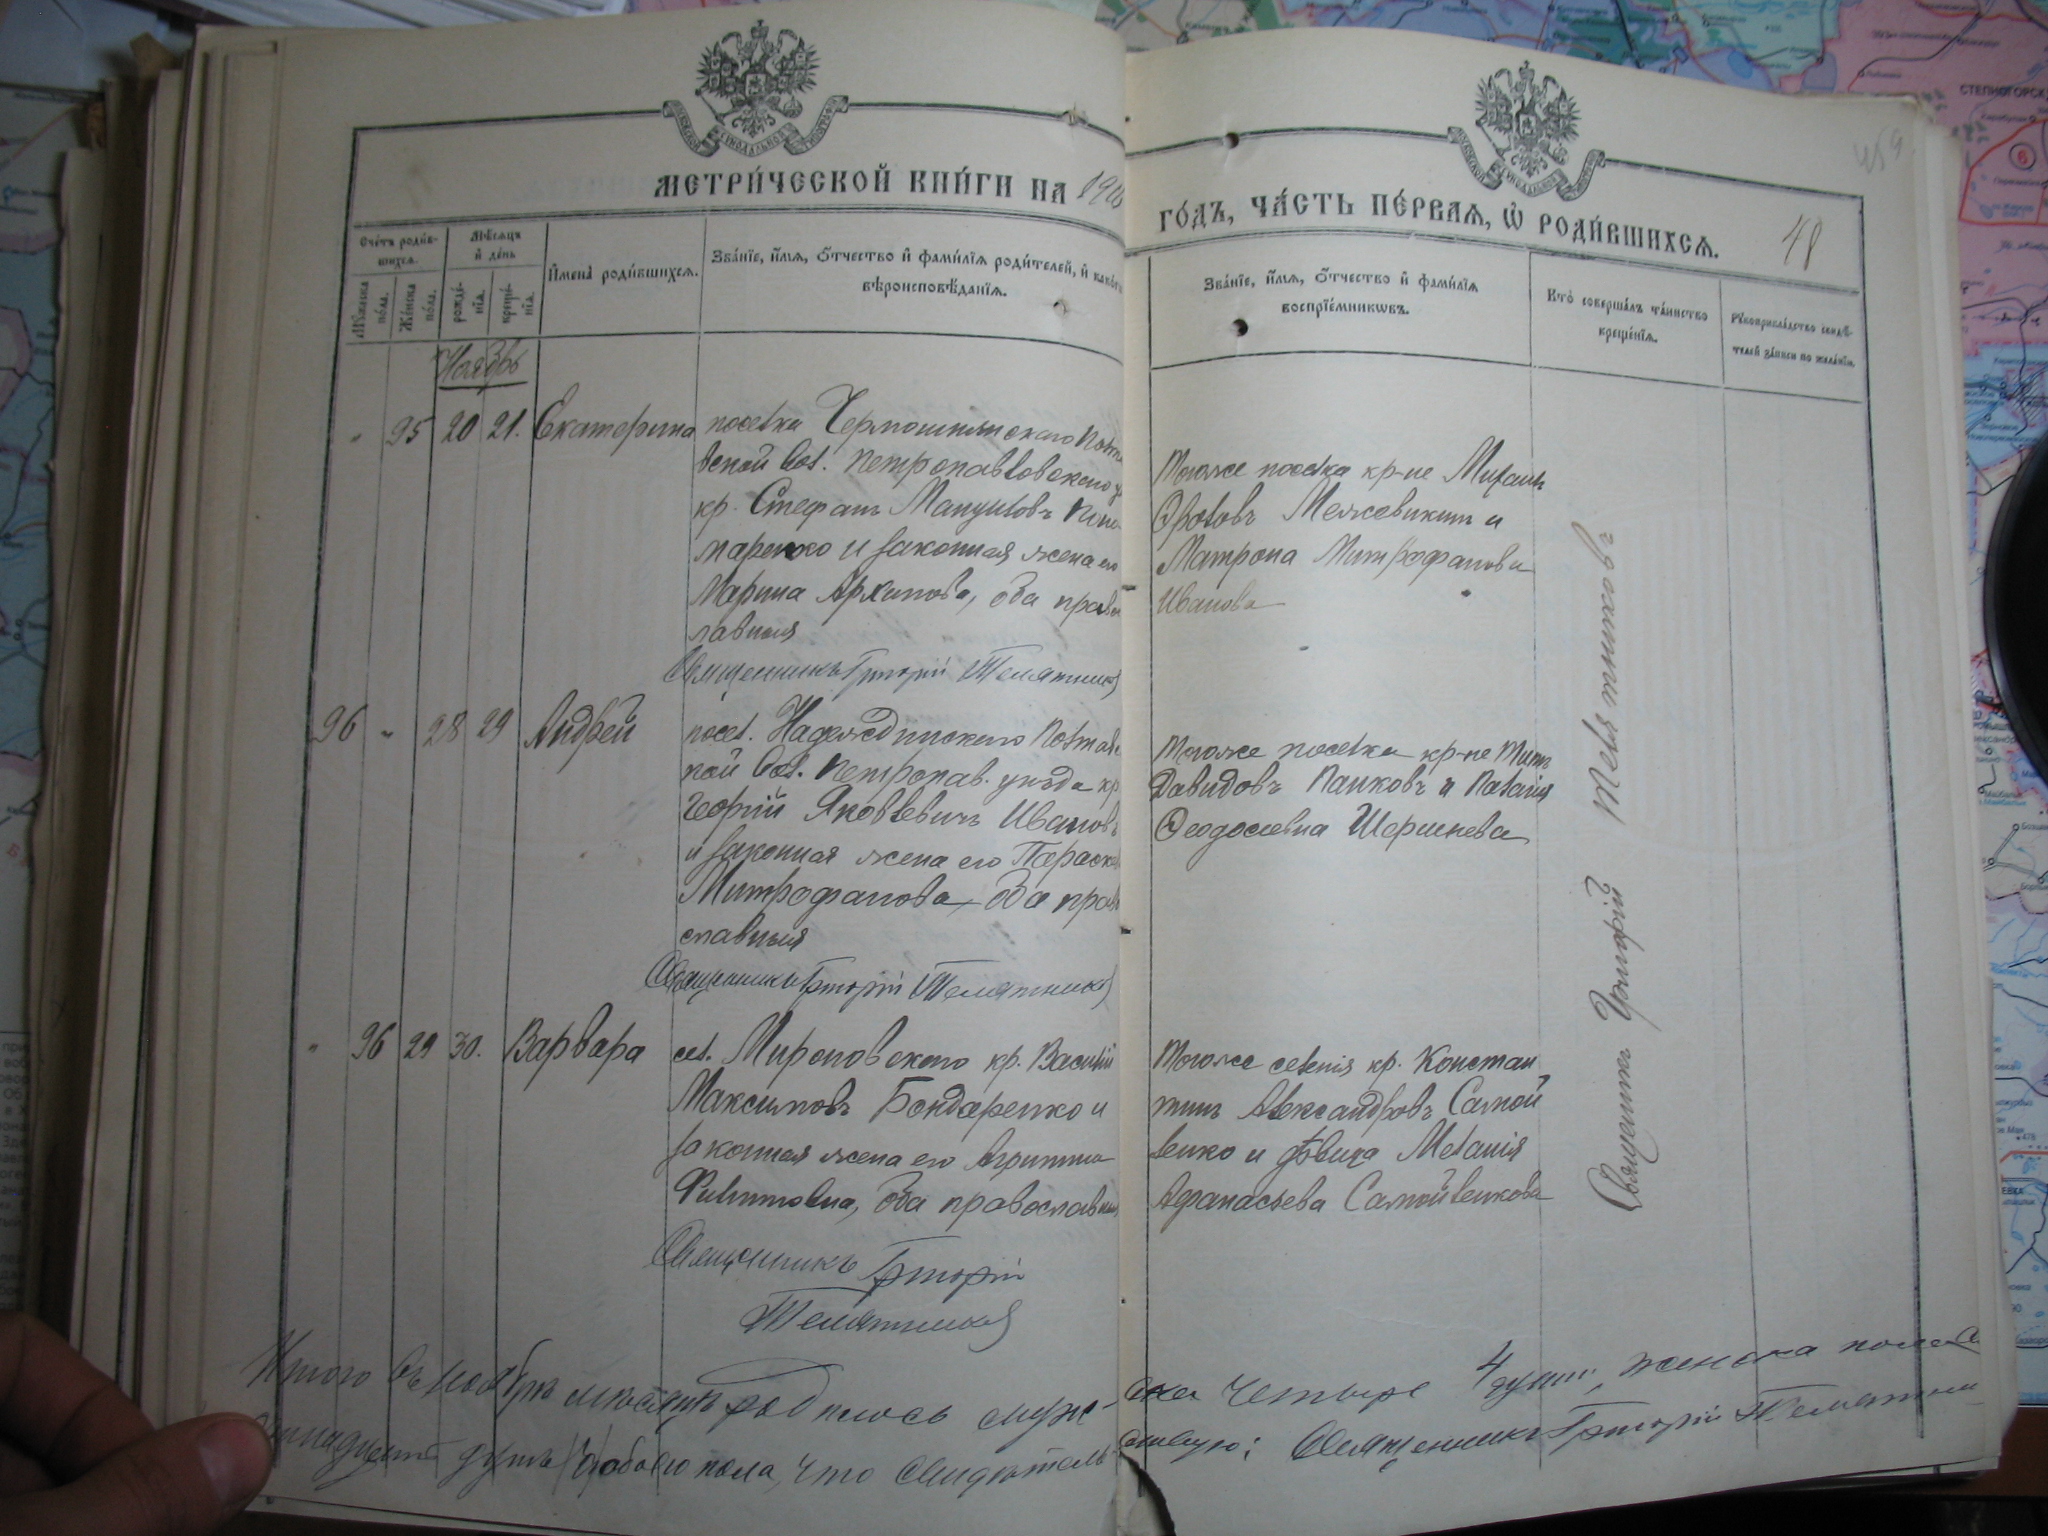 МЕТРИ́ЧЕСКОЙ КНИ́ГИ НА 19
ГО́ДЪ, ЧА́СТЬ ПЕ́РВАЯ, Ѡ҆ РОДИ́ВШИХСЯ.
48
Сче́тъ роди́в-
шихся.
Мѣ́сяцъ
и҆ де́нь
Му́жеска
по́ла.
Же́нска
по́ла.
рожде́-
нїя.
креще́-
нїя.
И҆мена̀ роди́вшихся.
Зва́нїе, и҆́мя, ѻ҆́тчество и҆ фами́лїя роди́телей, и҆ како́гѡ
вѣроисповѣ́данїя.
Зва́нїе, и҆́мя, ѻ҆́тчество и҆ фами́лїя
воспрїе́мникѡвъ.
Кто̀ соверша́лъ та́инство
креще́нїя.
Рꙋкоприкла́дство свидѣ́-
телей за́писи по жела́нїю.
Ноябрь
" 95 20 21. Екатерина
поселка Чермошнянскаго Полта
вской вол. Петропавловскаго у
кр. Стефанъ Мануиловъ Поно
маренко и законная жена его
Марина Архипова, оба право
лавныя
Священникъ Григорій Телятник
Тогоже поселка кр-не Михаилъ
Фроловъ Межевикинъ и
Матрона Митрофанова
Иванова
96 " 28 29 Андрей
посел. Надеждинскаго Полтавс
кой вол. Петропав. уѣзда кр
Георгій Яковлевичъ Ивановъ
и законная жена его Параск
Митрофанова, оба прав
славныя
Священникъ Григорій Телятник
Тогоже поселка кр-не
Давидовъ Панковъ и
Ѳеодосіевна
" 96 29 30. Варвара
сел. Мироновскаго кр. Василій
Максимовъ Бондаренко и
законная жена его Агрипина
Филиповна, оба православныя
Священникъ Григорій
Телятник
Тогоже селенія кр. Констан
тинъ Александровъ Самой
ленко и дѣвица Меланія
Афанасьева Самойленкова
Священникъ Григорій Телятниковъ
Итого въ ноябрѣ мѣсяцѣ родилось муже-
ска четыре 4 душъ, женска пола
душъ обоего пола, что свидѣтель-
ствую: Священникъ Григорій Телятник